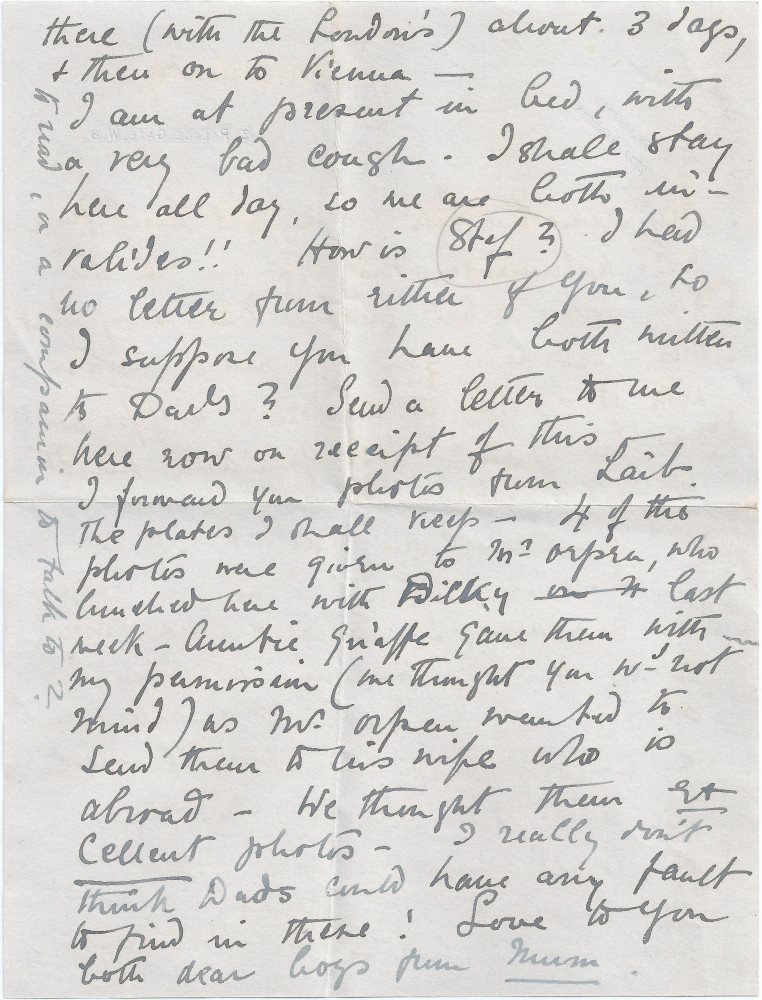 there (with the London's) about 3 days,
& then on to Vienna —
I am at present in bed, with
a very bad cough. I shall stay
here all day, so we are both in-
valides!! How is Stef? I had
no letter from either of you, so
I suppose you have both written
to Dads? Send a letter to me
here now on receipt of this
I forward you photos from
The plates I shall keep — 4 of the
photos were given to Mr Orpen, who
lunched here with Dilky last
week — Auntie Giraffe gave them with
my permission (we thought you wd not
mind) as Mr. Orpen wanted to
send them to his wife who is
abroad — We thought them ex
cellent photos — I really don't
think Dads could have any fault
to find in these! Love to you
both dear boys from Mum.
to read, or a companion to talk to?